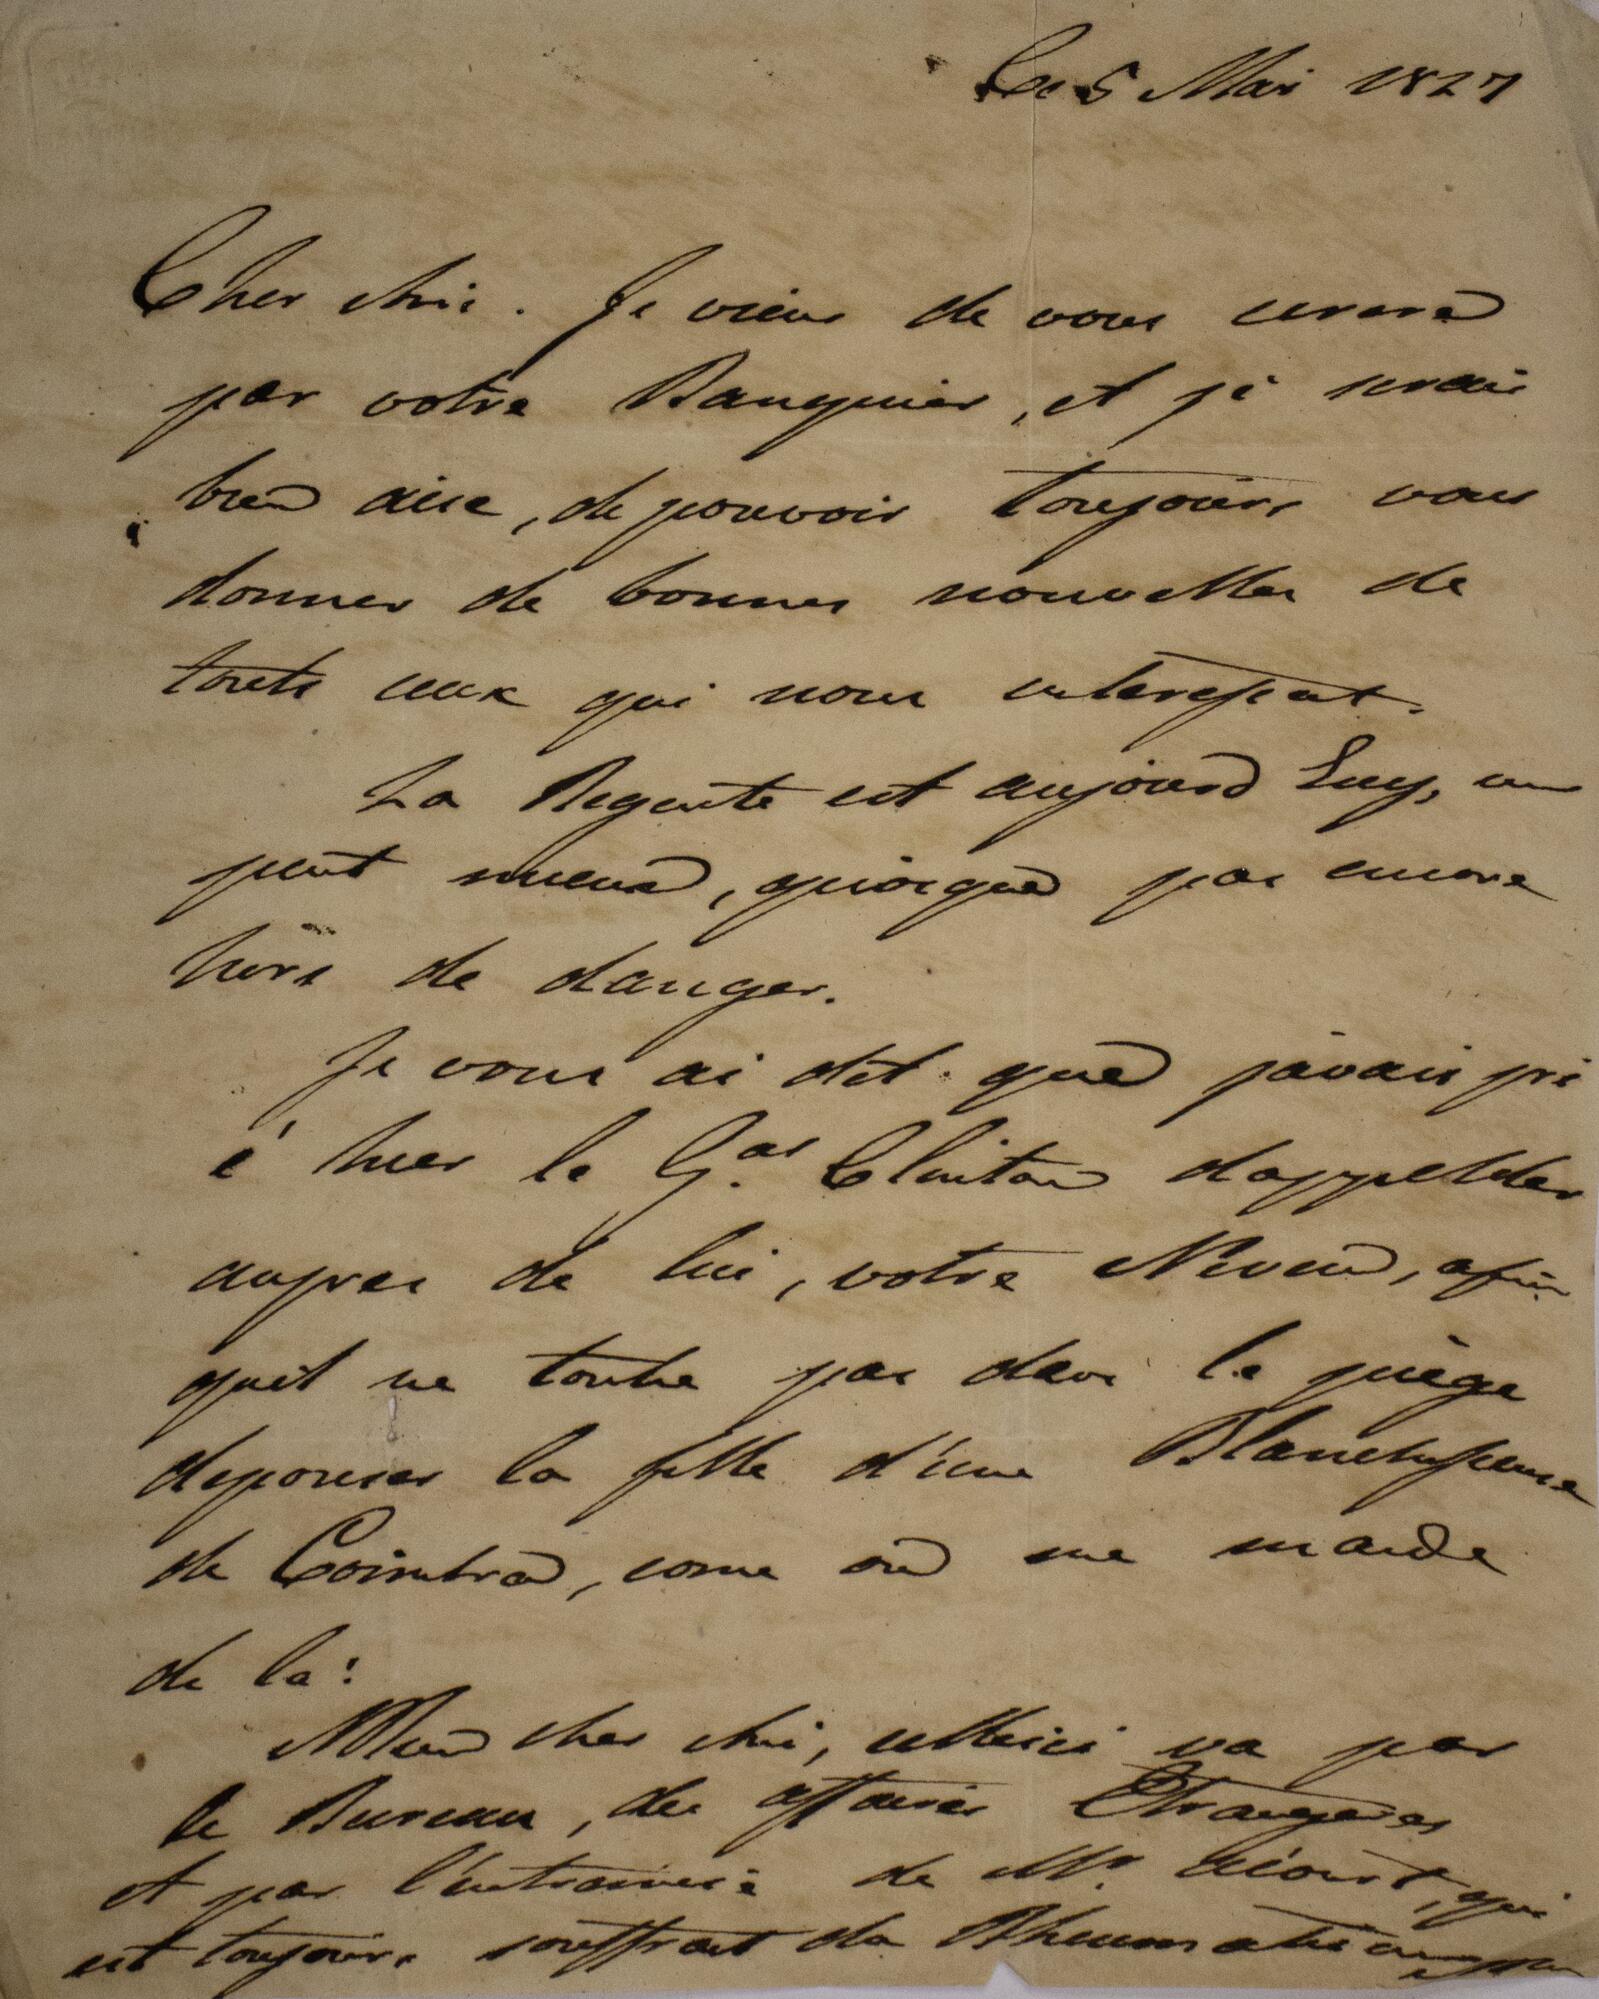 Ce 5 Mai 1827
Cher Ami. Je viens de vous ecrire
par votre Banquier, et je serais
bien aise, de pouvoir toujours vous
donner de bonnes nouvelles de
touts ceux qui nous interessent.
La Regente est aujourd huy, un
peut mieux, quoique pas encore
hors de danger.
Je vous ai dit que j'avais pri
é hier le G.al Clinton d'appeller
aupres de lui, votre Neveu, afin
quil ne tombe pas dans le piège
depouser la fille d'une Blanchisseuse
de Coimbra, come on me mande
de la!
Mon cher Ami, celleici va par
le Bureau, des affaires Etrangeres
et par l'entremise de Mr. Acourt, qui
est toujours souffrant du Rhumatisme